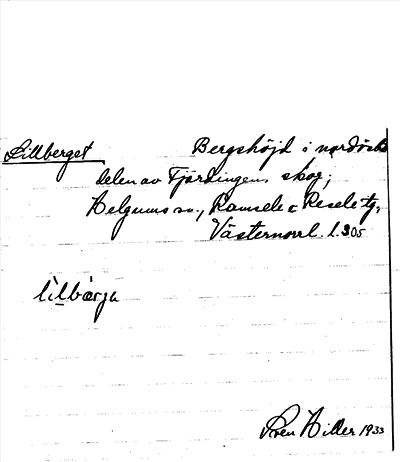 Lillberget Bergshöjd i nordöstl
delen av Fjärdingens skog;
Helgums sn, Ramsele & Resele tg,
Västernorrl. l. 305
lìlbærja
Sven Hiller 1933